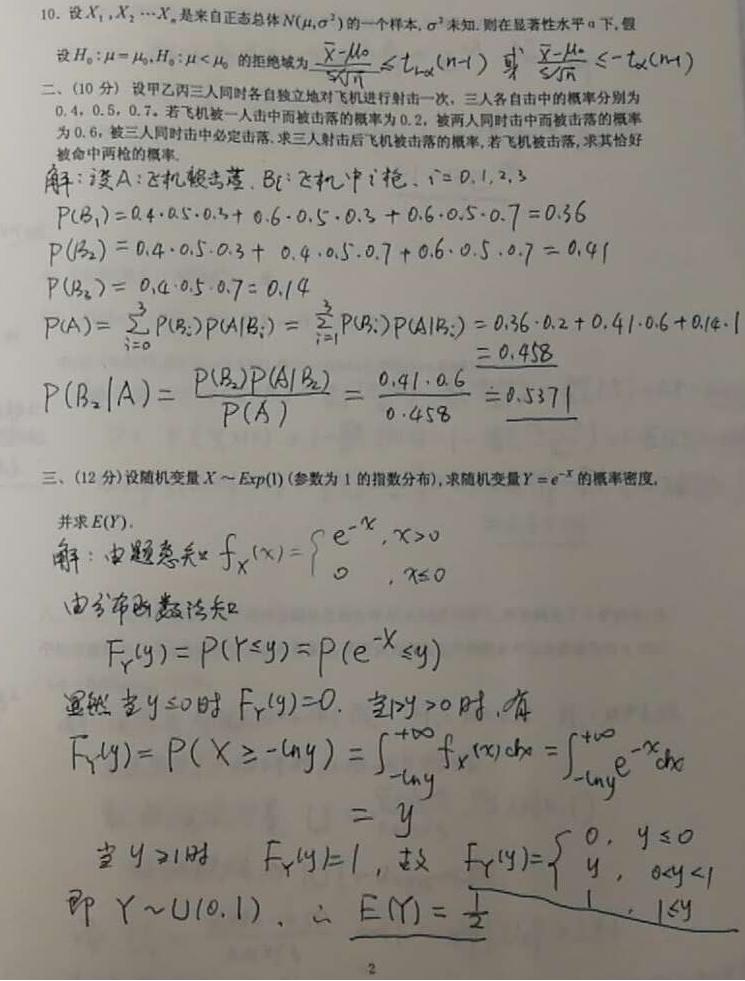 10. 设 X₁, X₂ ⋯ Xₙ 是来自正态总体 N(μ,σ²) 的一个样本, σ² 未知. 则在显著性水平 α 下, 假
设 H₀: μ = μ₀, H₀: μ < μ₀ 的拒绝域为 (X̄-μ₀)/(S/√n) ≤ t₁₋α(n-1) 或 (X̄-μ₀)/(S/√n) ≤ -tα(n-1)
二、(10 分) 设甲乙丙三人同时各自独立地对飞机进行射击一次, 三人各自击中的概率分别为
0.4, 0.5, 0.7. 若飞机被一人击中而被击落的概率为 0.2, 被两人同时击中而被击落的概率
为 0.6, 被三人同时击中必定击落. 求三人射击后飞机被击落的概率, 若飞机被击落, 求其恰好
被命中两枪的概率.
解: 设 A: 飞机被击落. Bi: 飞机中 i 枪. i = 0, 1, 2, 3
P(B₁) = 0.4·0.5·0.3 + 0.6·0.5·0.3 + 0.6·0.5·0.7 = 0.36
P(B₂) = 0.4·0.5·0.3 + 0.4·0.5·0.7 + 0.6·0.5·0.7 = 0.41
P(B₃) = 0.4·0.5·0.7 = 0.14
P(A) = ∑_{i=0}^{3} P(Bi)P(A|Bi) = ∑_{i=1}^{3} P(Bi)P(A|Bi) = 0.36·0.2 + 0.41·0.6 + 0.14·1
= 0.458
P(B₂|A) = P(B₂)P(A|B₂)/P(A) = 0.41·0.6/0.458 ≐ 0.5371
三、(12 分) 设随机变量 X ~ Exp(1) (参数为 1 的指数分布), 求随机变量 Y = e^{-X} 的概率密度,
并求 E(Y).
解: 由题意知 f_X(x) = { e^{-x}, x>0
0, x≤0
由分布函数法知
F_Y(y) = P(Y≤y) = P(e^{-X} ≤ y)
显然 当 y≤0 时 F_Y(y) = 0. 当 1>y>0 时, 有
F_Y(y) = P(X ≥ -ln y) = ∫_{-ln y}^{+∞} f_X(x)dx = ∫_{-ln y}^{+∞} e^{-x}dx
= y
当 y≥1 时 F_Y(y) = 1, 故 F_Y(y) = { 0, y≤0
y, 0<y<1
1, 1≤y
即 Y ~ U(0.1). ∴ E(Y) = 1/2
2